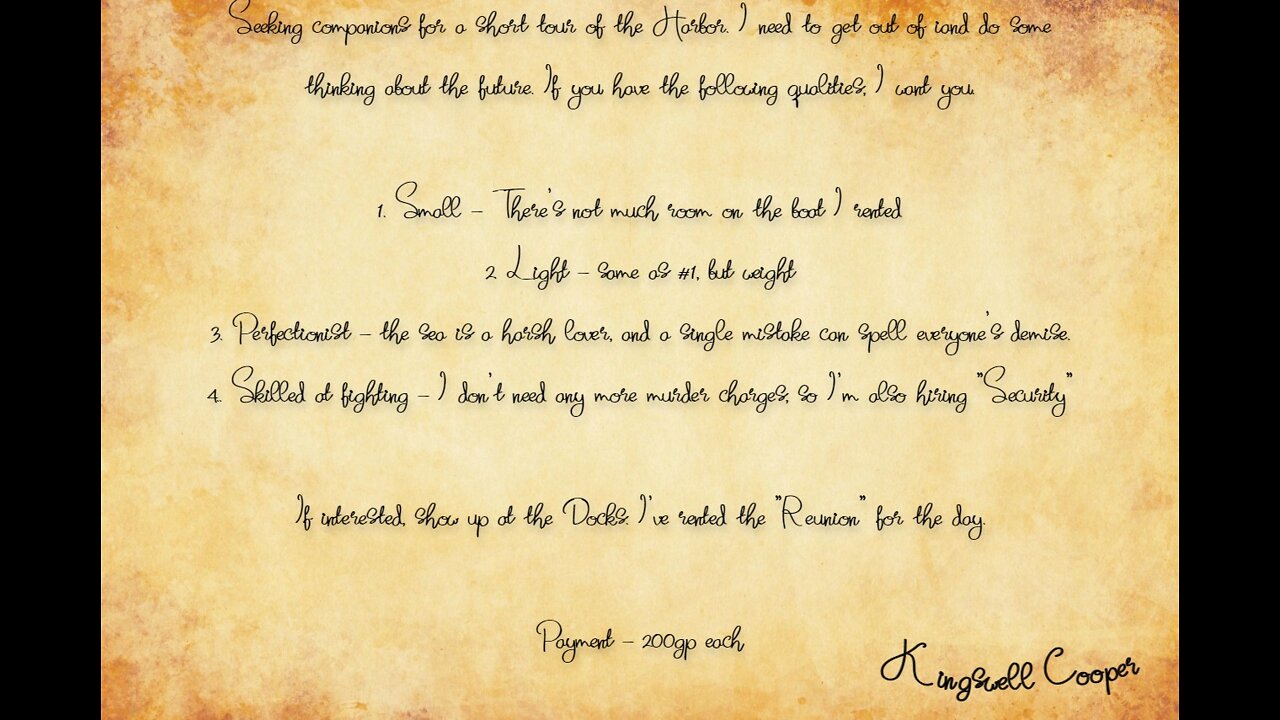 Seeking companions for a short tour of the Harbor. I need to get out of iand do some
thinking about the future. If you have the following qualities, I want you.
1. Small – There's not much room on the boat I rented
2. Light – same as #1, but weight
3. Perfectionist – the sea is a harsh lover, and a single mistake can spell everyone's demise.
4. Skilled at fighting – I don't need any more murder charges, so I'm also hiring "Security"
If interested, show up at the Docks. I've rented the "Reunion" for the day.
Payment – 200gp each
Kingswell Cooper